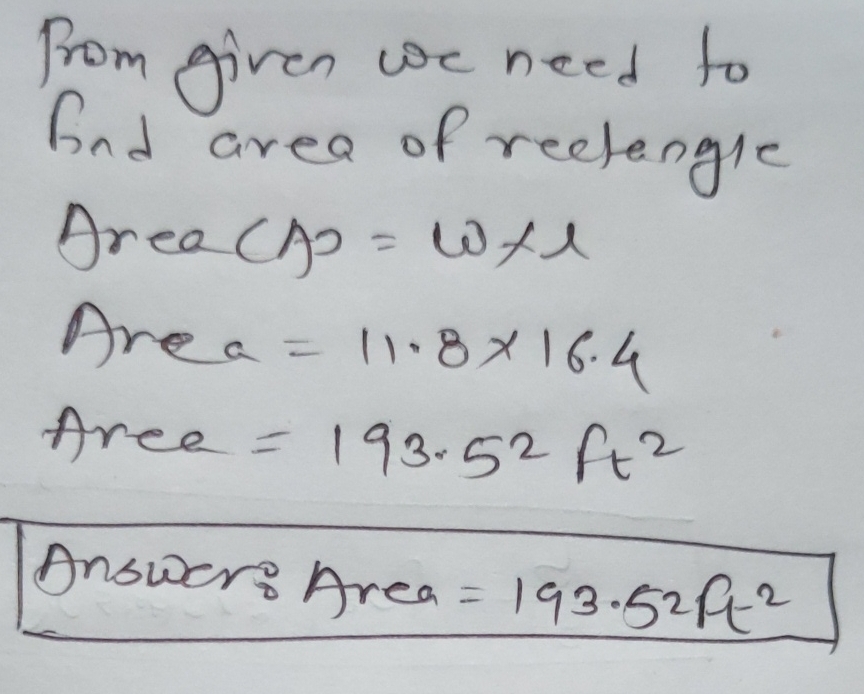 From given we need to
find area of rectangle
Area (A) = w × l
Area = 11.8 × 16.4
Area = 193.52 ft²
Answer: Area = 193.52 ft²